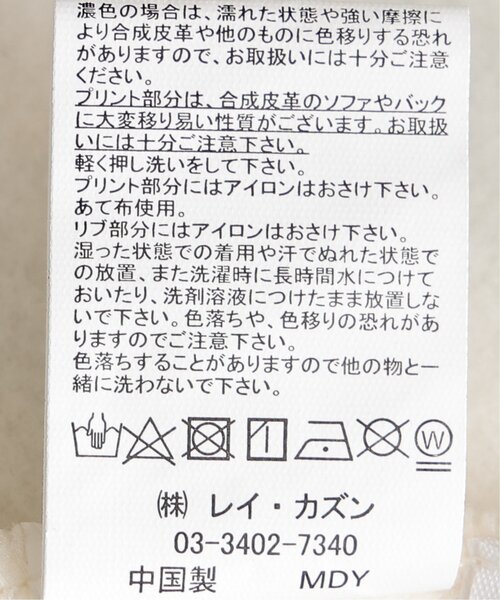 濃色の場合は、濡れた状態や強い摩擦に
より合成皮革や他のものに色移りする恐れ
がありますので、お取扱いには十分ご注意
ください。
プリント部分は、合成皮革のソファやバック
に大変移り易い性質がございます。お取扱
いには十分ご注意下さい。
軽く押し洗いをして下さい。
プリント部分にはアイロンはおさけ下さい。
あて布使用。
リブ部分にはアイロンはおさけ下さい。
湿った状態での着用や汗でぬれた状態で
の放置、また洗濯時に長時間水につけて
おいたり、洗剤溶液につけたまま放置しな
いで下さい。色落ちや、色移りの恐れがあ
りますのでご注意下さい。
色落ちすることがありますので他の物と一
緒に洗わないで下さい。
W
㈱ レイ・カズン
03-3402-7340
中国製 MDY